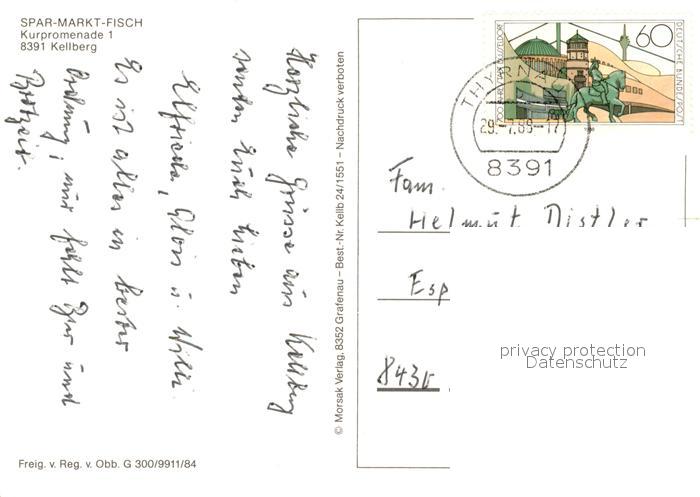 SPAR-MARKT-FISCH
Kurpromenade 1
8391 Kellberg
Herzliche Grüsse aus Kellberg
senden Euch Lieben
Elfriede, Alois u. Willi.
Es ist alles in bester
Ordnung, nur fehlt Zur und
Freig. v. Reg. v. Obb. G 300/9911/84
© Morsak Verlag, 8352 Grafenau – Best.-Nr. Kellb 24/1551 – Nachdruck verboten
700 JAHRE DÜSSELDORF
60
DEUTSCHE BUNDESPOST
THYRNAU
29.-7.89-17
8391
Fam.
Helmut Distler
Esp
8430
privacy protection
Datenschutz